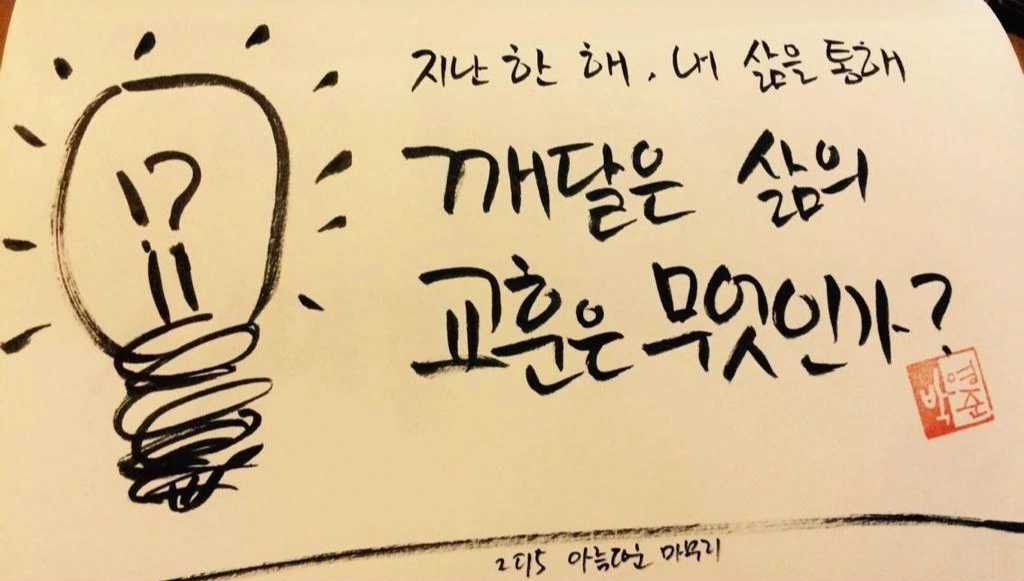 지난 한 해, 내 삶을 통해
깨달은 삶의
교훈은 무엇인가?
!?
박영준
2015 아름다운 마무리